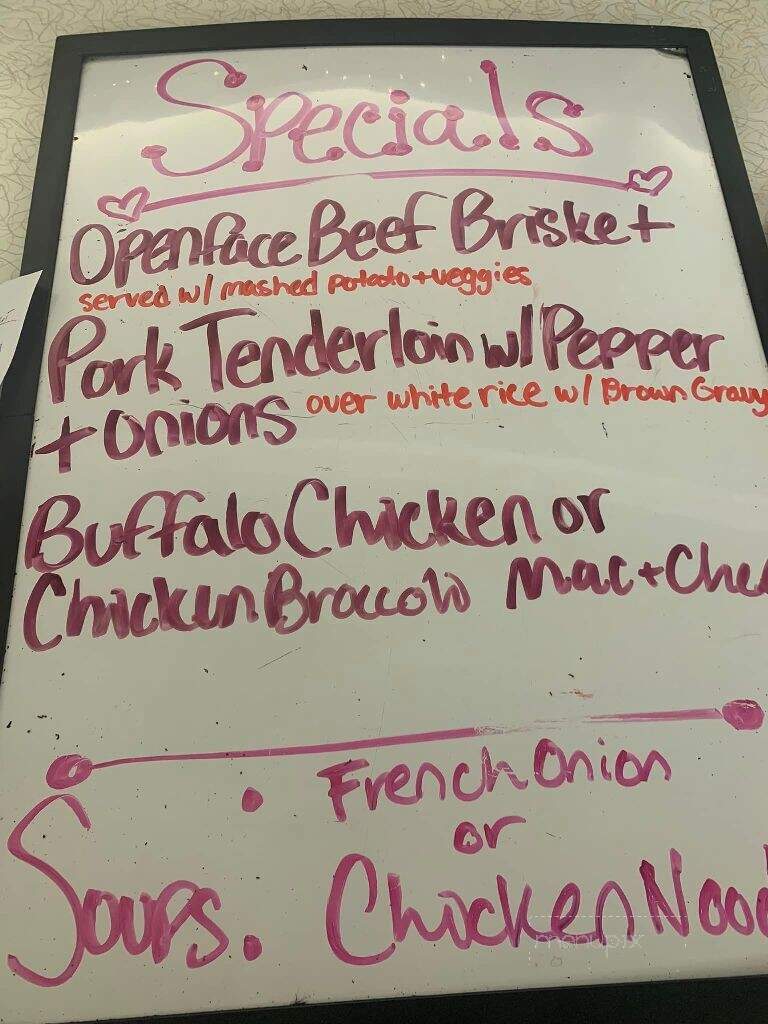 Specials
Openface Beef Brisket
served w/ mashed potato + veggies
Pork Tenderloin w/ Pepper
+ Onions over white rice w/ Brown Gravy
Buffalo Chicken or
Chicken Broccoli Mac + Chee
French Onion
or
Soups: Chicken Nood
menupix